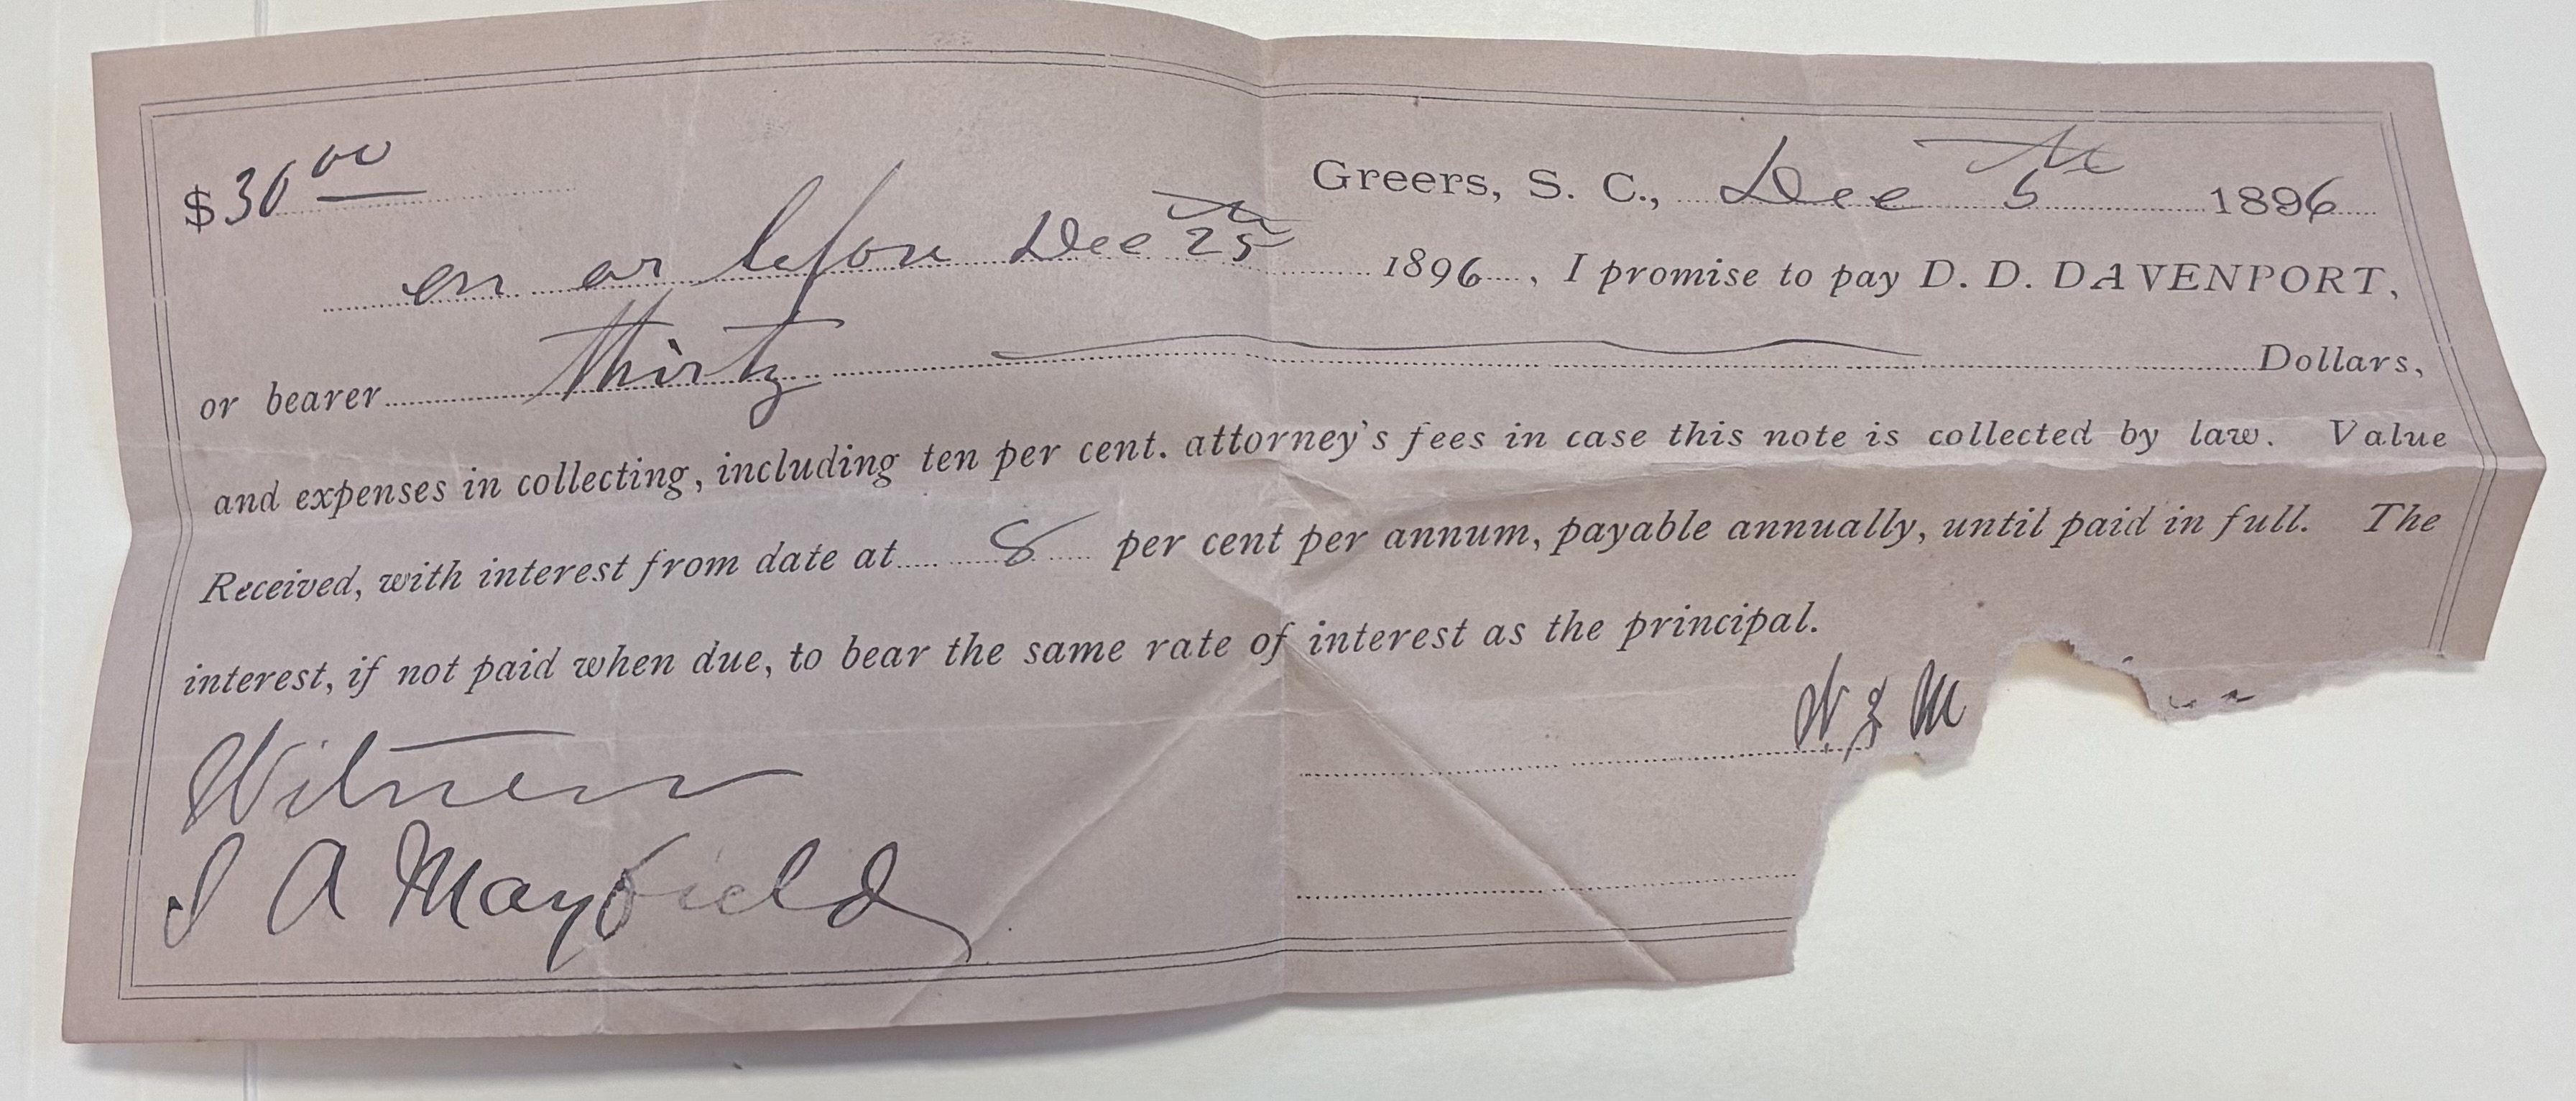 $30 00
Greers, S. C., Dec 5th 1896
on or before Dec 25th 1896, I promise to pay D. D. DAVENPORT,
or bearer thirty Dollars,
and expenses in collecting, including ten per cent. attorney's fees in case this note is collected by law. Value
Received, with interest from date at 8 per cent per annum, payable annually, until paid in full. The
interest, if not paid when due, to bear the same rate of interest as the principal.
Witness
A Mayfield